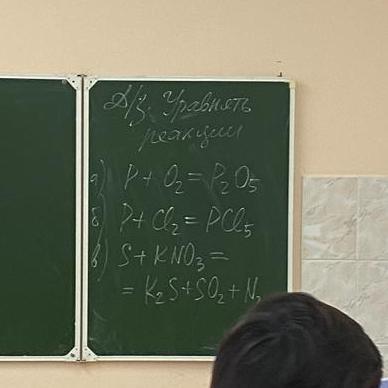 Д/з. Уравнять
реакции
а) P + O₂ = P₂O₅
б) P + Cl₂ = PCl₅
в) S + KNO₃ =
= K₂S + SO₂ + N₂